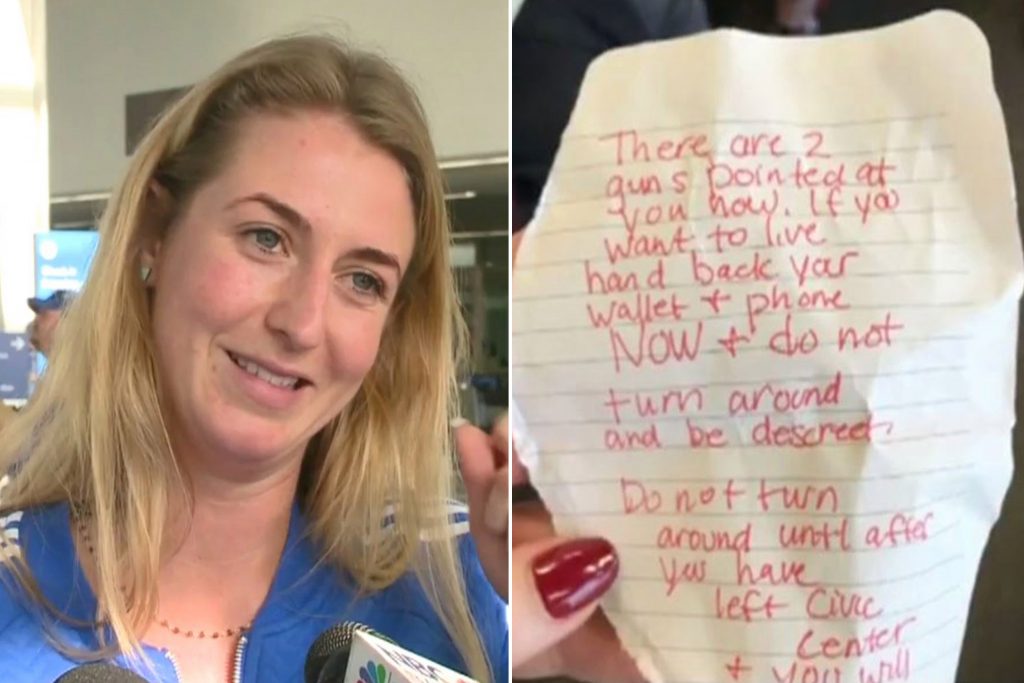 There are 2
guns pointed at
you now. If you
want to live
hand back your
wallet + phone
NOW + do not
turn around
and be descreet.
Do not turn
around until after
you have
left Civic
Center
+ you will
NBC